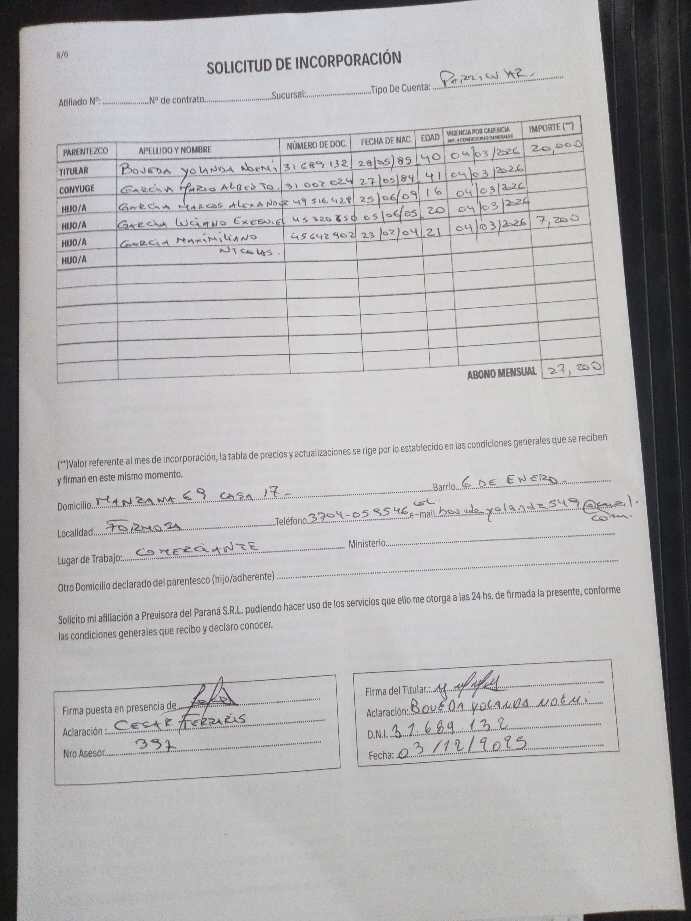 6/6
SOLICITUD DE INCORPORACIÓN
Afiliado Nº: Nº de contrato Sucursal: Tipo De Cuenta:
PARENTEZCO APELLIDO Y NOMBRE NÚMERO DE DOC. FECHA DE NAC. EDAD VIGENCIA POR CARENCIA IMPORTE (**)
TITULAR BOVEDA YOLANDA NOEMI 31689132 28/05/85 40 04/03/2026 20,000
CONYUGE GARCIA MARIO ALBERTO 31002024 27/05/84 41 04/03/2026
HIJO/A GARCIA MARCOS 49516428 25/06/09 16 04/03/2026
HIJO/A GARCIA LUCIANO 05/06/05 20 04/03/2026
HIJO/A GARCIA MAXIMILIANO 45642902 23/02/04 21 04/03/2026 7,200
HIJO/A NICOLAS.
ABONO MENSUAL 27,200
(**)Valor referente al mes de incorporación, la tabla de precios y actualizaciones se rige por lo establecido en las condiciones generales que se reciben
y firman en este mismo momento.
Domicilio MANZANA 69 CASA 17 - Barrio 6 DE ENERO
Localidad FORMOSA Teléfono 3704-058546 e-mail
Lugar de Trabajo: COMERCIANTE Ministerio
Otro Domicilio declarado del parentesco (hijo/adherente)
Solicito mi afiliación a Previsora del Paraná S.R.L. pudiendo hacer uso de los servicios que ello me otorga a las 24 hs. de firmada la presente, conforme
las condiciones generales que recibo y declaro conocer.
Firma puesta en presencia de
Aclaración: CESAR
Nro Asesor 397
Firma del Titular:
Aclaración: BOVEDA YOLANDA NOEMI
D.N.I. 31.689.132
Fecha: 03/12/2025